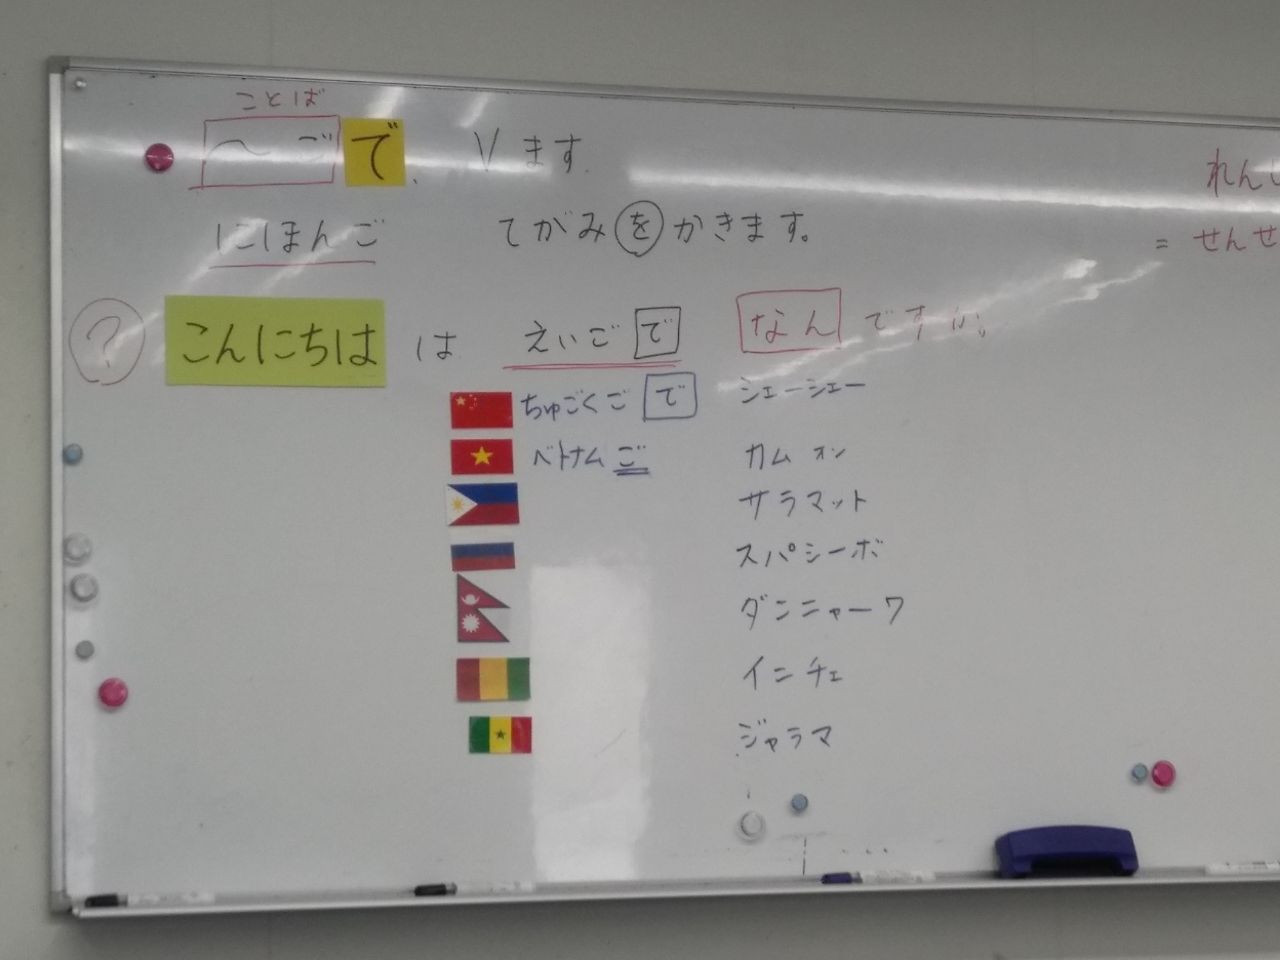 ことば
～ごで、 Vます
にほんご てがみをかきます。
れんし
= せんせ
? こんにちは は えいごで なんですか。
ちゅごくごで シェーシェー
ベトナムご カムオン
サラマット
スパシーボ
ダンニャーワ
イニチェ
ジャラマ